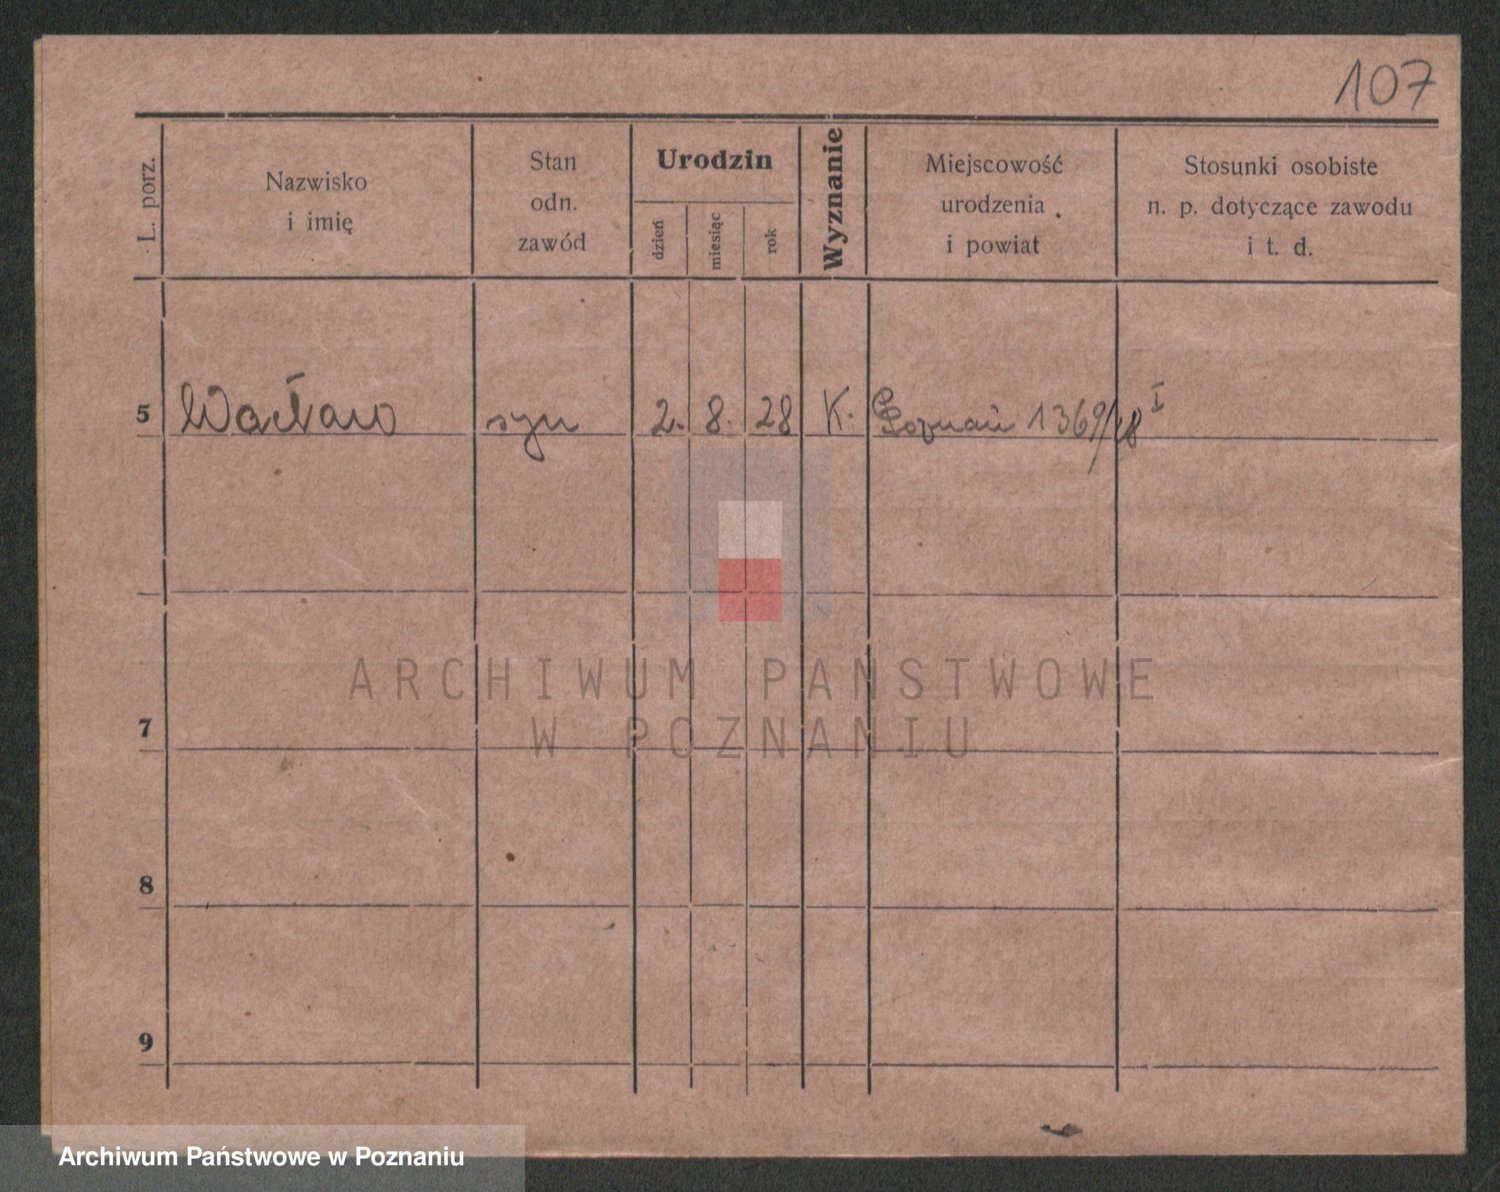 107
L. porz.
Nazwisko
i imię
Stan
odn.
zawód
Urodzin
dzień
miesiąc
rok
Wyznanie
Miejscowość
urodzenia
i powiat
Stosunki osobiste
n. p. dotyczące zawodu
i t. d.
5 Wacław syn 2. 8. 28 K. Poznań 1369/28 I
7
8
9
ARCHIWUM PAŃSTWOWE
W POZNANIU
Archiwum Państwowe w Poznaniu